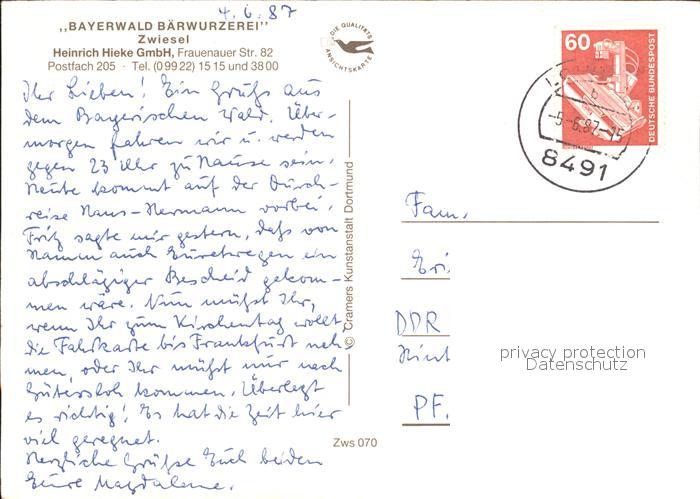 4.6.87
„BAYERWALD BÄRWURZEREI"
Zwiesel
Heinrich Hieke GmbH, Frauenauer Str. 82
Postfach 205 · Tel. (0 99 22) 15 15 und 38 00
DIE QUALITÄTS
ANSICHTSKARTE
60
DEUTSCHE BUNDESPOST
-5.-6.87-15
8491
Ihr Lieben! Ein Gruß aus
dem Bayerischen Wald. Über-
morgen fahren wir u. werden
gegen 23 Uhr zu Hause sein.
Heute kommt auf der Durch-
reise Hans-Hermann vorbei.
Fritz sagte mir gestern, daß von
Hamm auch Euretwegen ein
abschlägiger Bescheid gekom-
men wäre. Nun müßt Ihr,
wenn Ihr zum Kirchentag wollt
die Fahrkarte bis Frankfurt neh-
men, oder Ihr müßt nur nach
Gütersloh kommen. Überlegt
es richtig! Es hat die Zeit hier
viel geregnet.
Herzliche Grüße Euch beiden
Eure Magdalene.
© Cramers Kunstanstalt Dortmund
Zws 070
Fam.
Eri.
DDR
PF.
privacy protection
Datenschutz